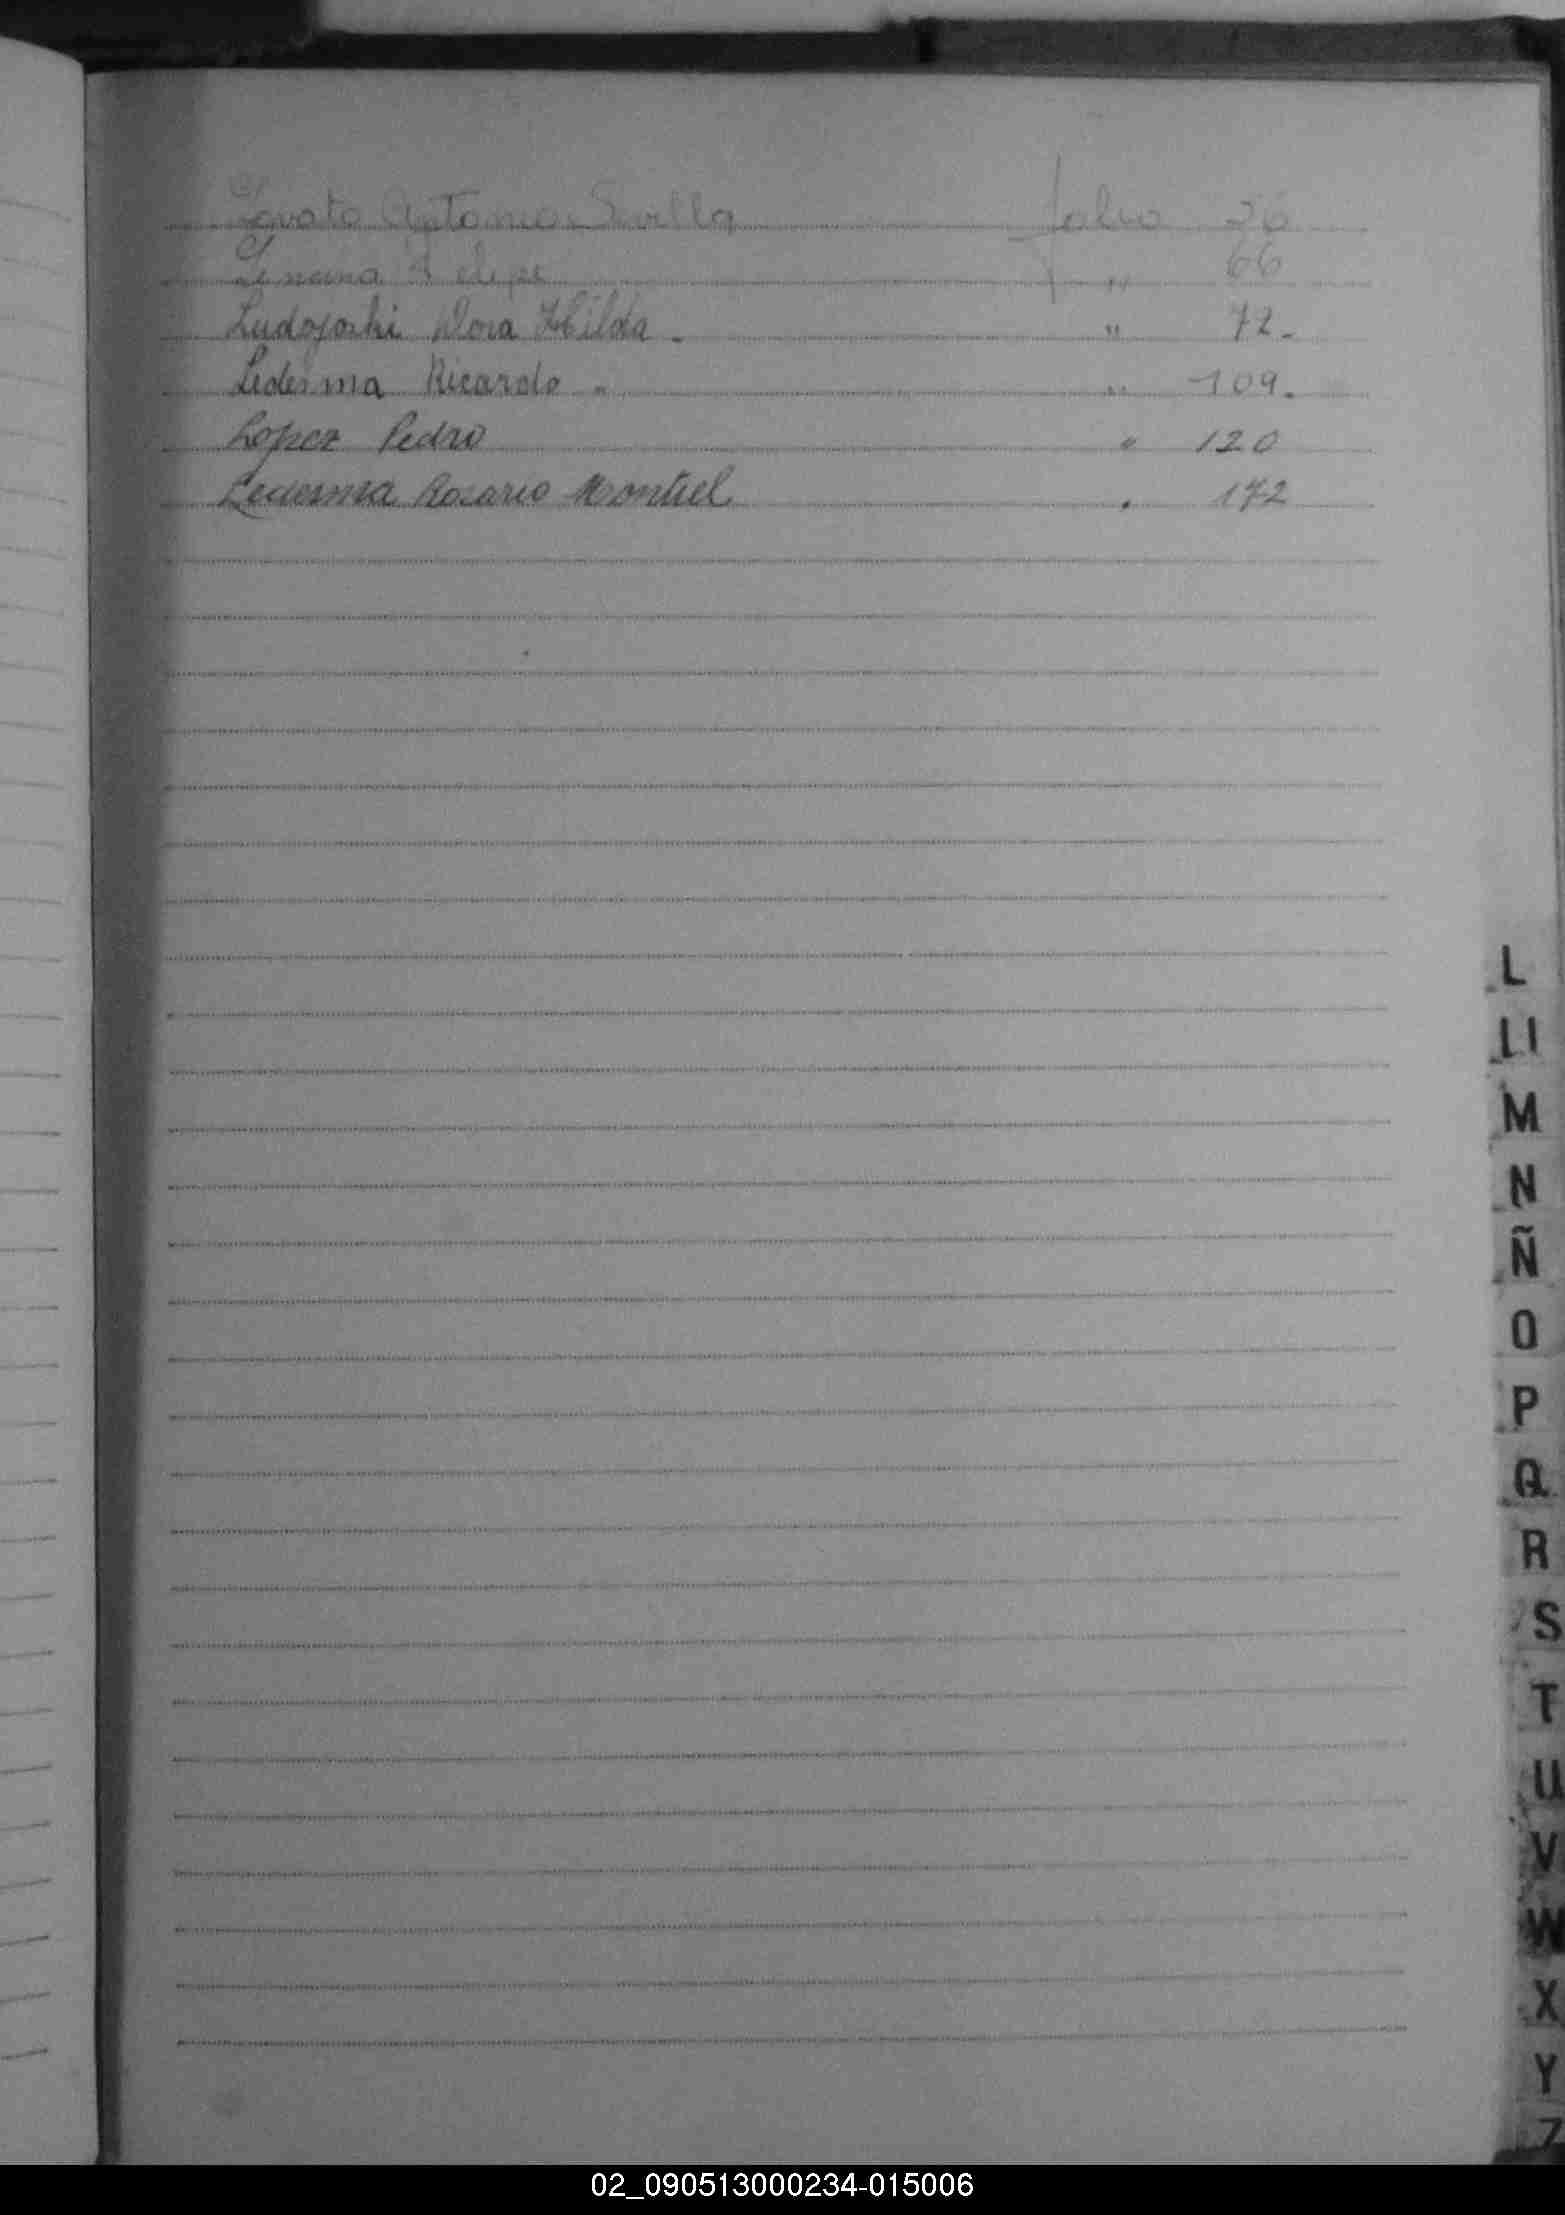 Lovato Antonio Sevilla folio 26
Felipe " 66
Ludojoski Dora Hilda. " 72.
Ledesma Ricardo. " 109.
Lopez Pedro " 120
Ledesma Rosario Montiel . 172
L
Ll
M
N
Ñ
O
P
Q
R
S
T
U
V
W
X
Y
Z
02_090513000234-015006